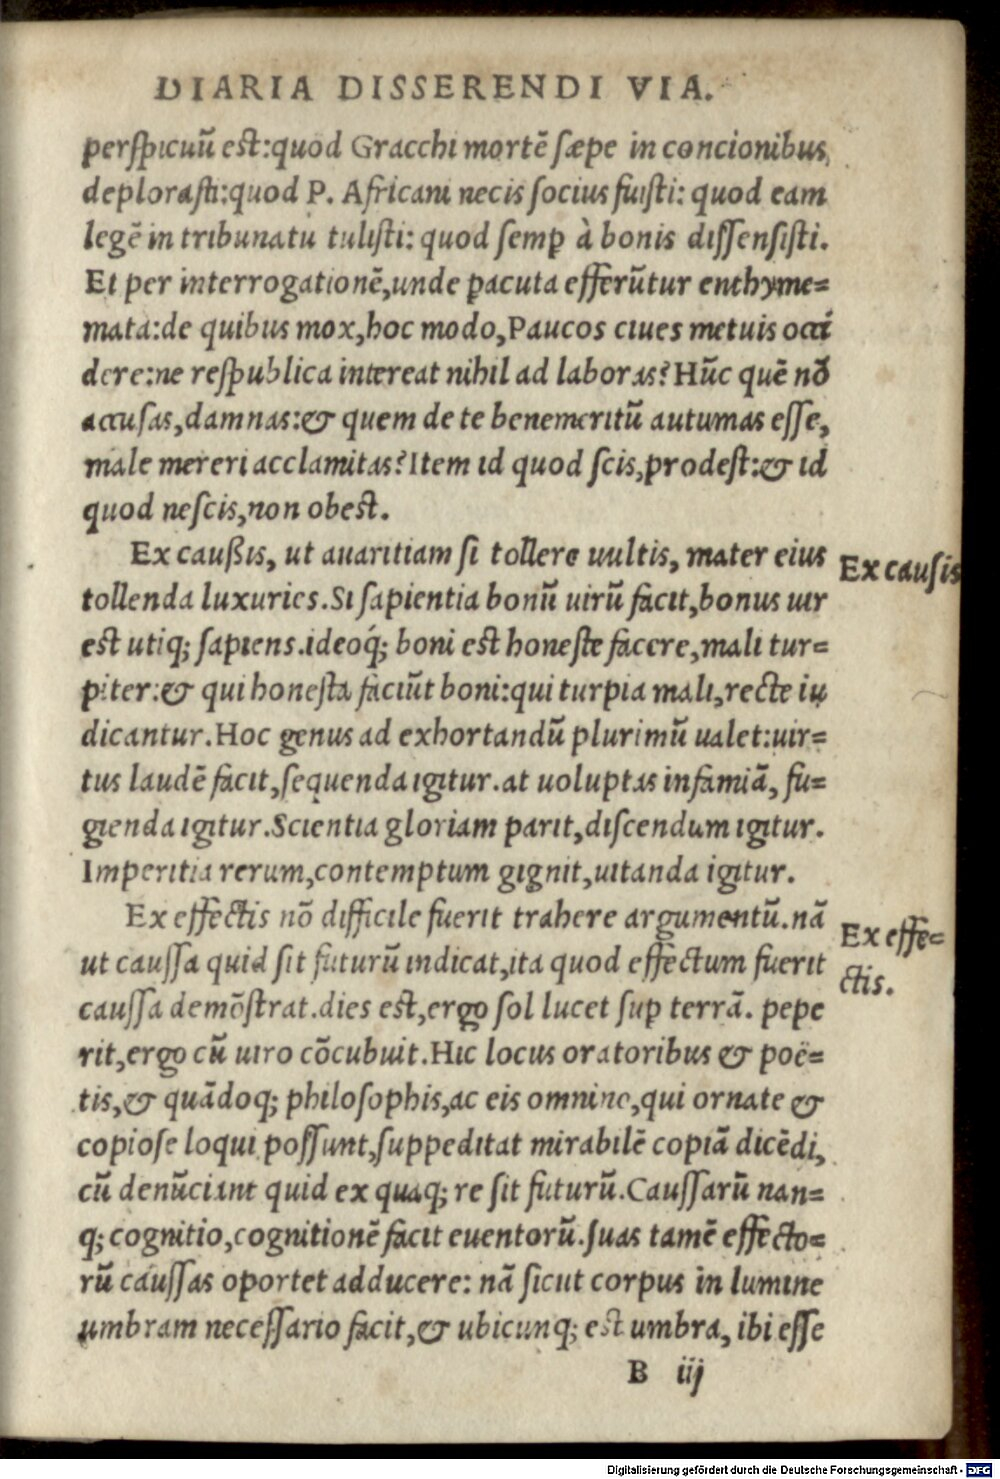 DIARIA DISSERENDI VIA.
perspicuū est:quod Gracchi mortē sæpe in concionibus
deplorasti:quod P. Africani necis socius fuisti: quod eam
legē in tribunatu tulisti: quod semꝑ à bonis dissensisti.
Et per interrogationē,unde ꝑacuta efferūtur enthyme=
mata:de quibus mox,hoc modo,Paucos ciues metuis occi
dere:ne respublica intereat nihil ad laboras?Hūc quē nō
accusas,damnas:& quem de te benemeritū autumas esse,
male mereri acclamitas?Item id quod scis,prodest:& id
quod nescis,non obest.
Ex caußis, ut auaritiam si tollere uultis, mater eius
tollenda luxuries.Si sapientia bonū uirū facit,bonus uir
est utiq; sapiens.ideoq́; boni est honeste facere,mali tur=
piter:& qui honesta faciūt boni:qui turpia mali,recte iu
dicantur.Hoc genus ad exhortandū plurimū ualet:uir=
tus laudē facit,sequenda igitur.at uoluptas infamiā, fu=
gienda igitur.Scientia gloriam parit,discendum igitur.
Imperitia rerum,contemptum gignit,uitanda igitur.
Ex causis
Ex effectis nō difficile fuerit trahere argumentū.nā
ut caussa quid sit futurū indicat,ita quod effectum fuerit
caussa demōstrat.dies est,ergo sol lucet suꝑ terrā. pepe
rit,ergo cū uiro cōcubuit.Hic locus oratoribus & poë=
tis,& quādoq; philosophis,ac eis omnino,qui ornate &
copiose loqui possunt,suppeditat mirabilē copiā dicēdi,
cū denūciant quid ex quaq; re sit futurū.Caussarū nan=
q; cognitio,cognitionē facit euentorū.Suas tamē effecto=
rū caussas oportet adducere: nā sicut corpus in lumine
umbram necessario facit,& ubicunq; est umbra, ibi esse
Ex effe=
ctis.
B iij
Digitalisierung gefördert durch die Deutsche Forschungsgemeinschaft - DFG